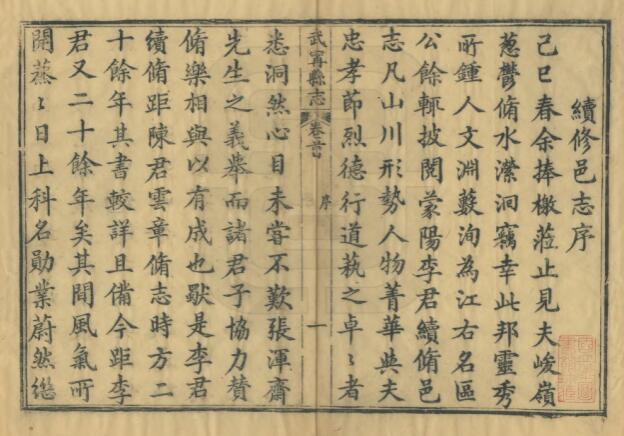 續修邑志序
己巳春余捧檄蒞止見夫峻嶺
葱鬱脩水瀠洄竊幸此邦靈秀
所鍾人文淵藪洵為江右名區
公餘輙披閱蒙陽李君續脩邑
志凡山川形勢人物菁華與夫
忠孝節烈德行道蓺之卓〻者
武寧縣志 卷首 序 一
悉洞然心目未嘗不歎張渾齋
先生之義舉而諸君子協力贊
脩樂相與以有成也歟是李君
續脩距陳君雲章脩志時方二
十餘年其書較詳且備今距李
君又二十餘年矣其間風氣所
開蒸〻日上科名勛業蔚然繼